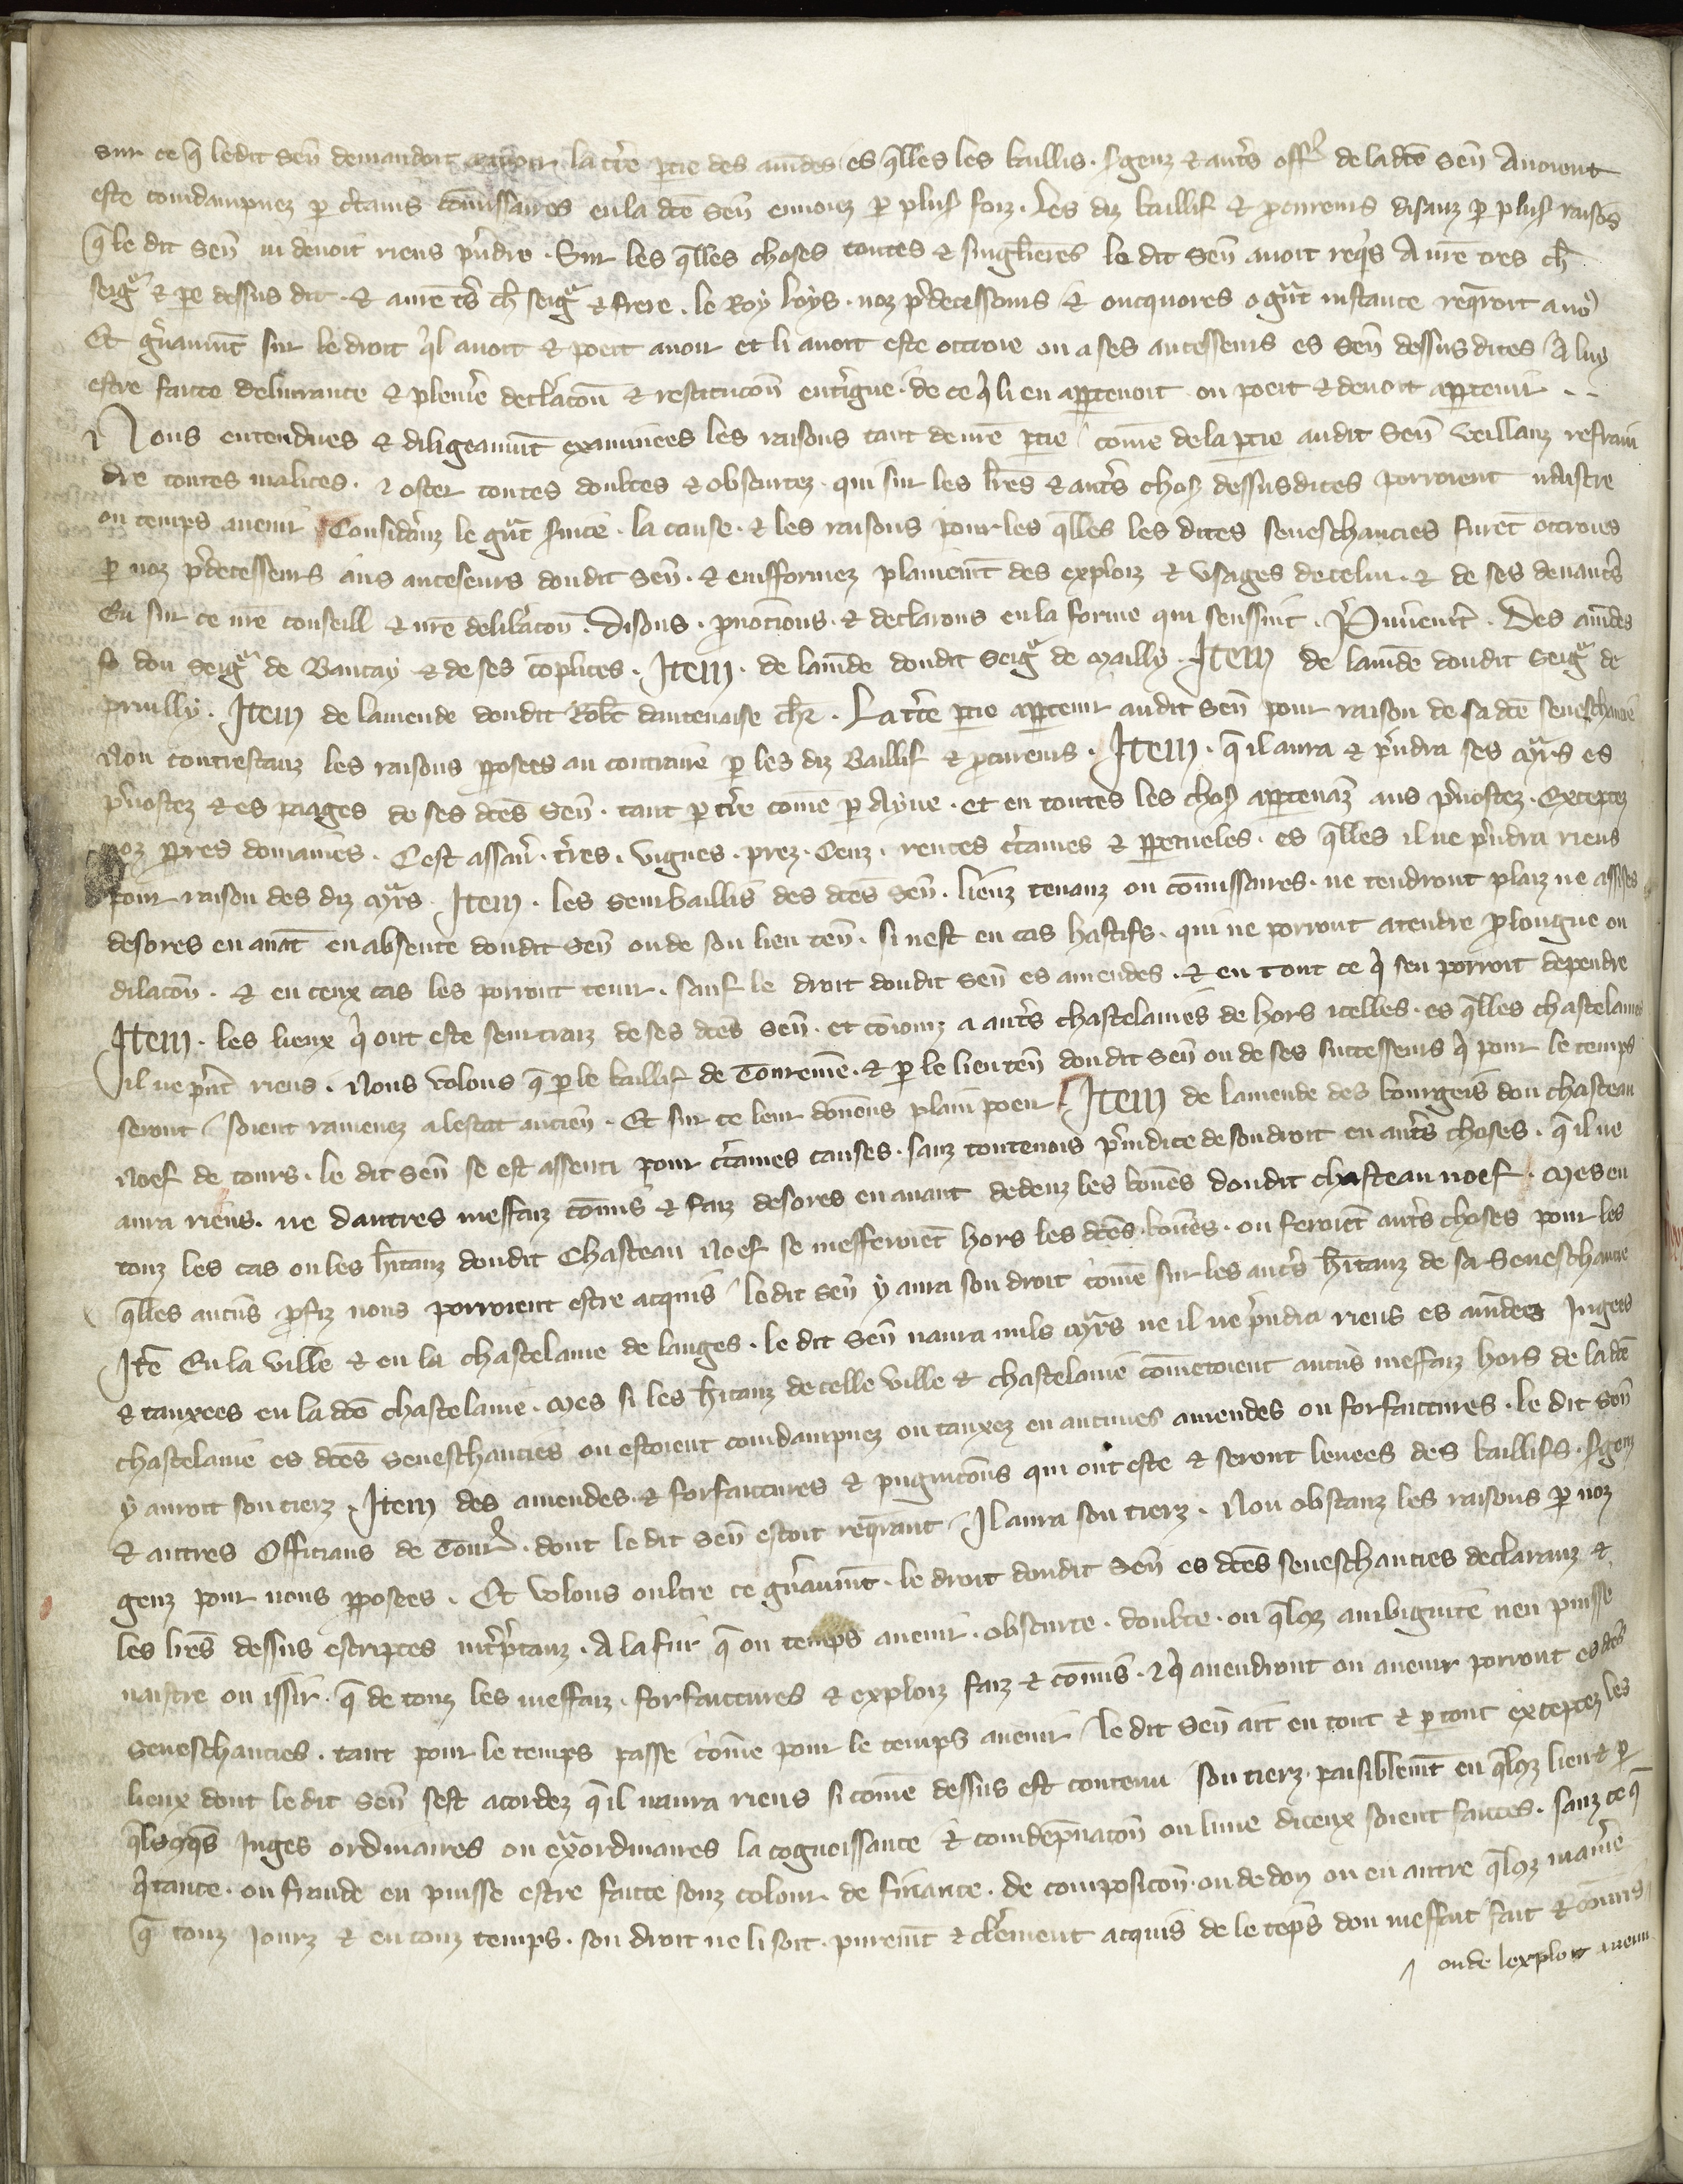 sur ce q̄ ledit Sen̄ demandoit auoir la t̾re ꝑtie des am̄des es q̄lles les baillis . s̾genz ⁊ aut̾s off̾ de la dc̄e Sen̄ Auoient
este condampnez ꝑ c̾tains cōmissaires en la dc̄e Sen̄ enuoiez ꝑ plus̾ foiz . Les diz baillif ⁊ ꝓcureurs disanz ꝑ plus̾ raisōs
q̄ le dit Sen̄ ni deuoit riens p̾ndre . Sur les q̄lles choses toutes ⁊ singlieres le dit Sen̄ auoit req̾s A nr̄e tres ch̾
seigͣ ⁊ pe dessus dit . ⁊ a nr̄e t̾s ch̾ seigͣ ⁊ frere . le Roy loys . noz p̾decesseurs ⁊ oncquores o gͣnt instance req̄roit a no⁹
Et gñaumt̄ sur le droit q̾l auoit ⁊ poeit auoir et li auoit este ottroie ou a ses ancesseurs es Sen̄ dessus dites A luy
estre faicte deliurance ⁊ pleniere decl̾acōn ⁊ restitucōn ent̾igne . de ce q̾ li en aꝑtenoit ou poeit ⁊ deuoit aꝑtenir . .
Nous entendues ⁊ diligeaumt̄ examinees les raisons tant de nr̄e ꝑtie come de la ꝑtie audit Sen̄ veillanz refrain
dre toutes malices . ⁊ oster toutes doubtes ⁊ obscurtez . qui sur les lr̄es ⁊ aut̾s chos̾ dessusdites porroient naistre
ou temps auenir Consid̾anz le gͣnt s̾uice . la cause . ⁊ les raisons pour les q̄lles les dites seneschaucies furēt ottroiees
ꝑ noz p̾decesseurs aus anceseurs doudit Sen̄ . ⁊ enifformez plainemt̄ des exploiz ⁊ vsages de celui . ⁊ de ses deuanc̾s
Eu sur ce nr̄e conseill ⁊ nr̄e delib̾acōn . Disons . ꝓnōcions . ⁊ declarons en la forme qui senssiut . P̾mieremt̄ . Des am̄des
so dou Seigͣ de Baucay ⁊ de ses cōplices . Item . de lam̄de doudit Seigͣ de Mailly . Item de lam̄de doudit Seigͣ de
pruilly . Item de lamende doudit Rob̄t dantenaise ch̾r . La t̾ce ꝑtie aꝑtenir audit Sen̄ pour raison de sa dc̄e seneschaucie
Non contrestanz les raisons ꝓposees au contraire ꝑ les diz Baillif ⁊ ꝓcureurs . Item . q̄ il aura ⁊ p̾ndra ses q̾rs es
p̾uostez ⁊ es paages de ses dc̄es Sen̄ . tant ꝑ t̾re come ꝑ Ayue . et en toutes les chos̾ aꝑtenāz aus p̾uostez . Exceptez
noz ꝓpres domaines . Cest assau̾ . t̾res . vignes . prez . Cenz . rentes c̾taines ⁊ ꝑpetueles . es q̄lles il ne p̾ndra riens
pour raison des diz q̾rs . Item . les seurbaillis des dc̄es Sen̄ . lieuz tenanz ou cōmissaires . ne tendront plaiz ne assises
desores en auāt en absence doudit Sen̄ ou de son lieu ten̄ . si nest en cas hastifs . qui ne porront atendre ꝓlongue ou
dilacōn . ⁊ en ceux cas les porront tenir . sauf le droit doudit Sen̄ es amendes . ⁊ en tout ce q̾ sen porroit dependre
Item . les lieux q̾ ont este seurtraiz de ses dc̄es Sen̄ . et cōiouz a aut̾s chastelanies de hors icelles . es q̄lles chastelanies
il ne p̾nt riens . Nous volons q̄ ꝑ le baillif de Touremē . ⁊ ꝑ le lieu ten̄ doudit Sen̄ ou de ses successeurs q̾ pour le temps
seront soient ramenez a lestat ancien̄ . Et sur ce leur donnons plain poeir . Item de lamende des bourgeis dou chasteau
Noef de tours . le dit Sen̄ se est assenti pour c̾taines causes . sanz toutevois p̾iudice de son droit en aut̾s choses . q̄ il ne
aura riens . ne dautres meffaiz cōmis ⁊ faiz desores en auant dedenz les bonēs doudit chasteau noef . Mes en
touz les cas ou les h̄itanz doudit Chasteau Noef se mefferoiēt hors les dc̄es bonēs . ou feroiēt aut̾s choses pour les
q̄lles aucūs ꝓfiz nous porroient estre acquis ledit Sen̄ y aura son droit come sur les aut̾s h̄itanz de sa Seneschaucie
Itē En la ville ⁊ en la chastelanie de langes . le dit Sen̄ naura nuls q̾rs ne il ne p̾ndra riens es am̄des Iugees
⁊ tauxees en la dc̄e chastelanie . Mes si les h̄itanz de celle ville ⁊ chastelanie cōmetoient aucūs meffaiz hors de la dc̄e
chastelanie es dc̄es Seneschaucies ou estoient condampnez ou tauxez en aucunes amendes ou forfaictures . le dit Sen̄
y auroit son tierz . Item des amendes . ⁊ forfaictures ⁊ pugnicōns qui ont este ⁊ seront leuees des baillifs . s̾genz
⁊ autres Officiaus de Tour̾ . dont le dit Sen̄ estoit req̄rant Il aura son tierz . Non obstanz les raisons ꝑ noz
genz pour nous ꝓposees . Et volons oultre ce gñaumt̄ . le droit doudit Sen̄ es dc̄es seneschaucies declaranz ⁊
les lr̄es dessus escriptes int̾p̾tanz . A la fin q̄ ou temps auenir . obscurte . doubte . ou q̄lqz ambiguite nen puisse
naistre ou issir . q̄ de touz les meffaiz . forfaictures ⁊ exploiz faiz ⁊ cōmis . ⁊ q̾ auendront ou auenir porront es dc̄es
Seneschaucies . tant pour le temps passe come pour le temps auenir le dit Sen̄ ait en tout ⁊ ꝑ tout exceptez les
lieux dont ledit Sen̄ sest acordez q̄ il naura riens si come dessus est contenu son tierz paisiblemt̄ en q̄lqz lieu ⁊ ꝑ
q̄lsqqs Iuges ordinaires ou exͣordinaires la cognoissance ⁊ condēpnacōn ou lune diceux soient faictes . sanz ce q̄
q̾tance . ou fraude en puisse estre faicte souz colour de finance . de composicōn . ou de don ou en autre q̄lqz manie̾
q̄ touz iourz ⁊ en touz temps . son droit ne li soit . puremt̄ ⁊ cl̾ement acquis de le tēps dou meffait fait ⁊ cōmis
ou de lexploit auenu